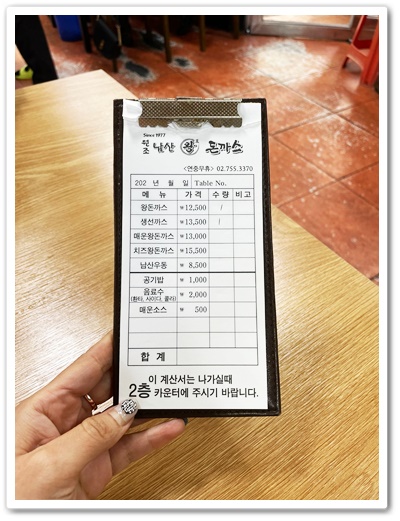 Since 1977
원조 남산 왕 돈까스
<연중무휴> 02.755.3370
202 년 월 일 Table No.
메 뉴 가 격 수 량 비 고
왕돈까스 ₩12,500 /
생선까스 ₩13,500 /
매운왕돈까스 ₩13,000
치즈왕돈까스 ₩15,500
남산우동 ₩ 8,500
공기밥 ₩ 1,000
음료수 ₩ 2,000
(환타, 사이다, 콜라)
매운소스 ₩ 500
합 계
이 계산서는 나가실때
2층 카운터에 주시기 바랍니다.